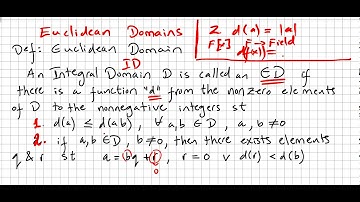 Euclidean Domains
Z d(a) = |a|
F[x] F → Field
d(f(x)) =
Def: Euclidean Domain
ID
An Integral Domain D is called an ED if
there is a function "d" from the nonzero elements
of D to the nonnegative integers st
1. d(a) ≤ d(ab), ∀ a,b ∈ D, a,b ≠ 0
2. if a,b ∈ D, b ≠ 0, then there exists elements
q & r st a = bq + r, r = 0 ∨ d(r) < d(b)
0